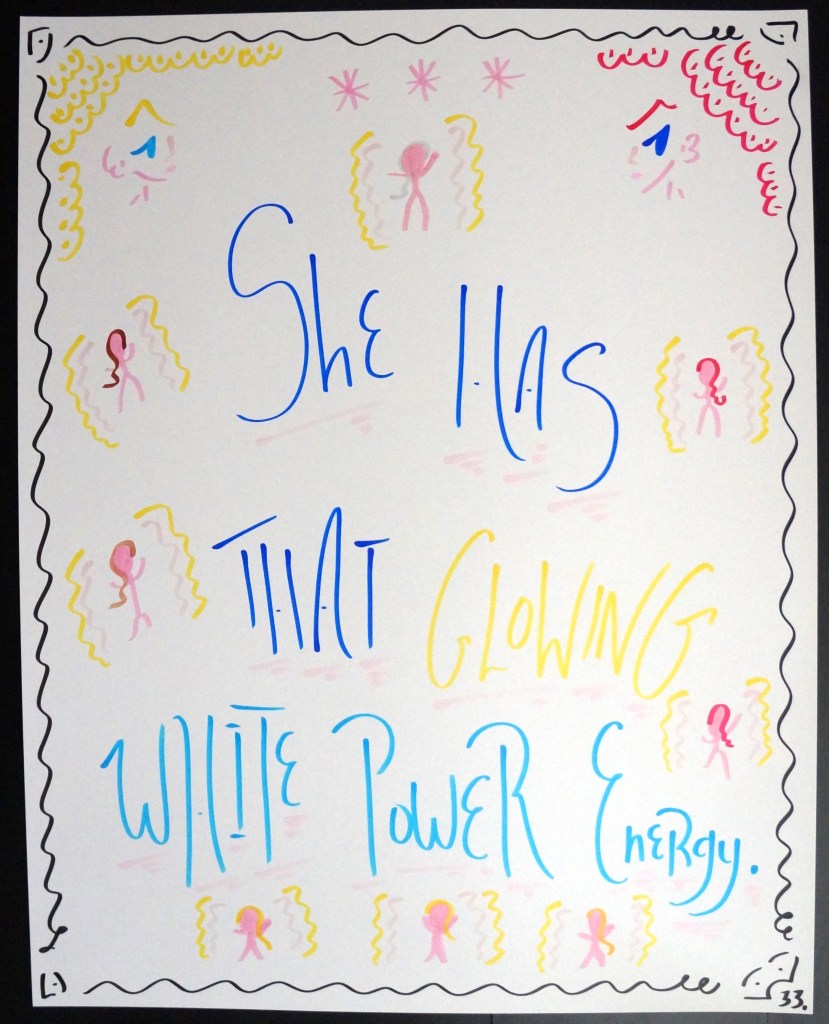 She HAS
THAT GLOWING
WHITE POWER ENERGY.
33.